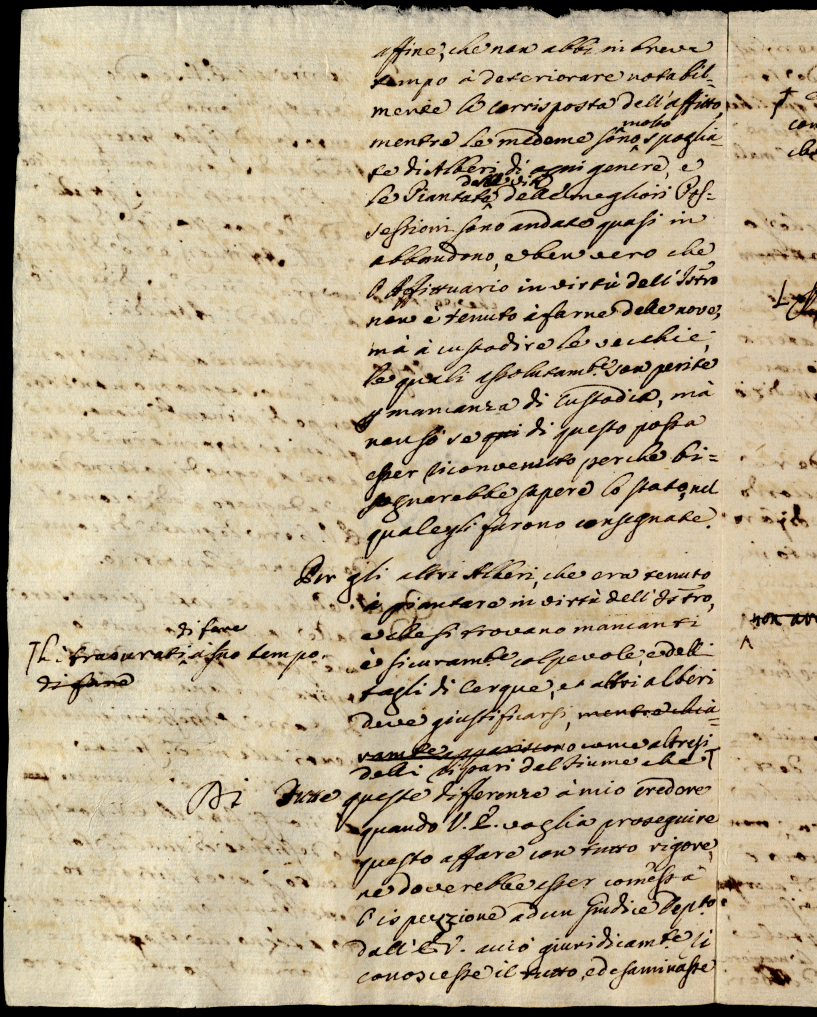 affine, che non abbi in breve
tempo à deteriorare notabil=
mente la corrisposta dell'affitto,
molto
mentre le medeme sono spoglia-
te di Alberi di ogni genere, e
delle viti
le Piantate delle megliori Pos=
sessioni sono andate quasi in
abbandono, e ben vero che
l'Affittuario in virtù dell'Istro
non è tenuto à farne delle nove,
mà à custodire le vecchie,
le quali assolutamte son perite
p mancanza di Custodia, mà
non sò se qui di questo possa
esser riconvenuto perche bi=
sognarebbe sapere lo stato, nel
quale gli furono consegnate.
Per gli altri Alberi, che era tenuto
à piantare in virtù dell'Istro,
e che si trovano mancanti
è sicuramte colpevole, e delli
tagli di Cerque, et altri alberi
deve giustificarsi, mentre chia=
ramte appariscono come altresi
delli ripari del Fiume che
di fare
hà trascurati à suo tempo.
di fare
Di Tutte queste differenze à mio credere
quando V.E. voglia proseguire
questo affare con tutto rigore,
ne doverebbe esser comessa
l'ispezzione ad un Giudice Depto
dall'E.V. acciò giuridicamte si
conoscesse il tutto, ed esaminasse
con
che
non